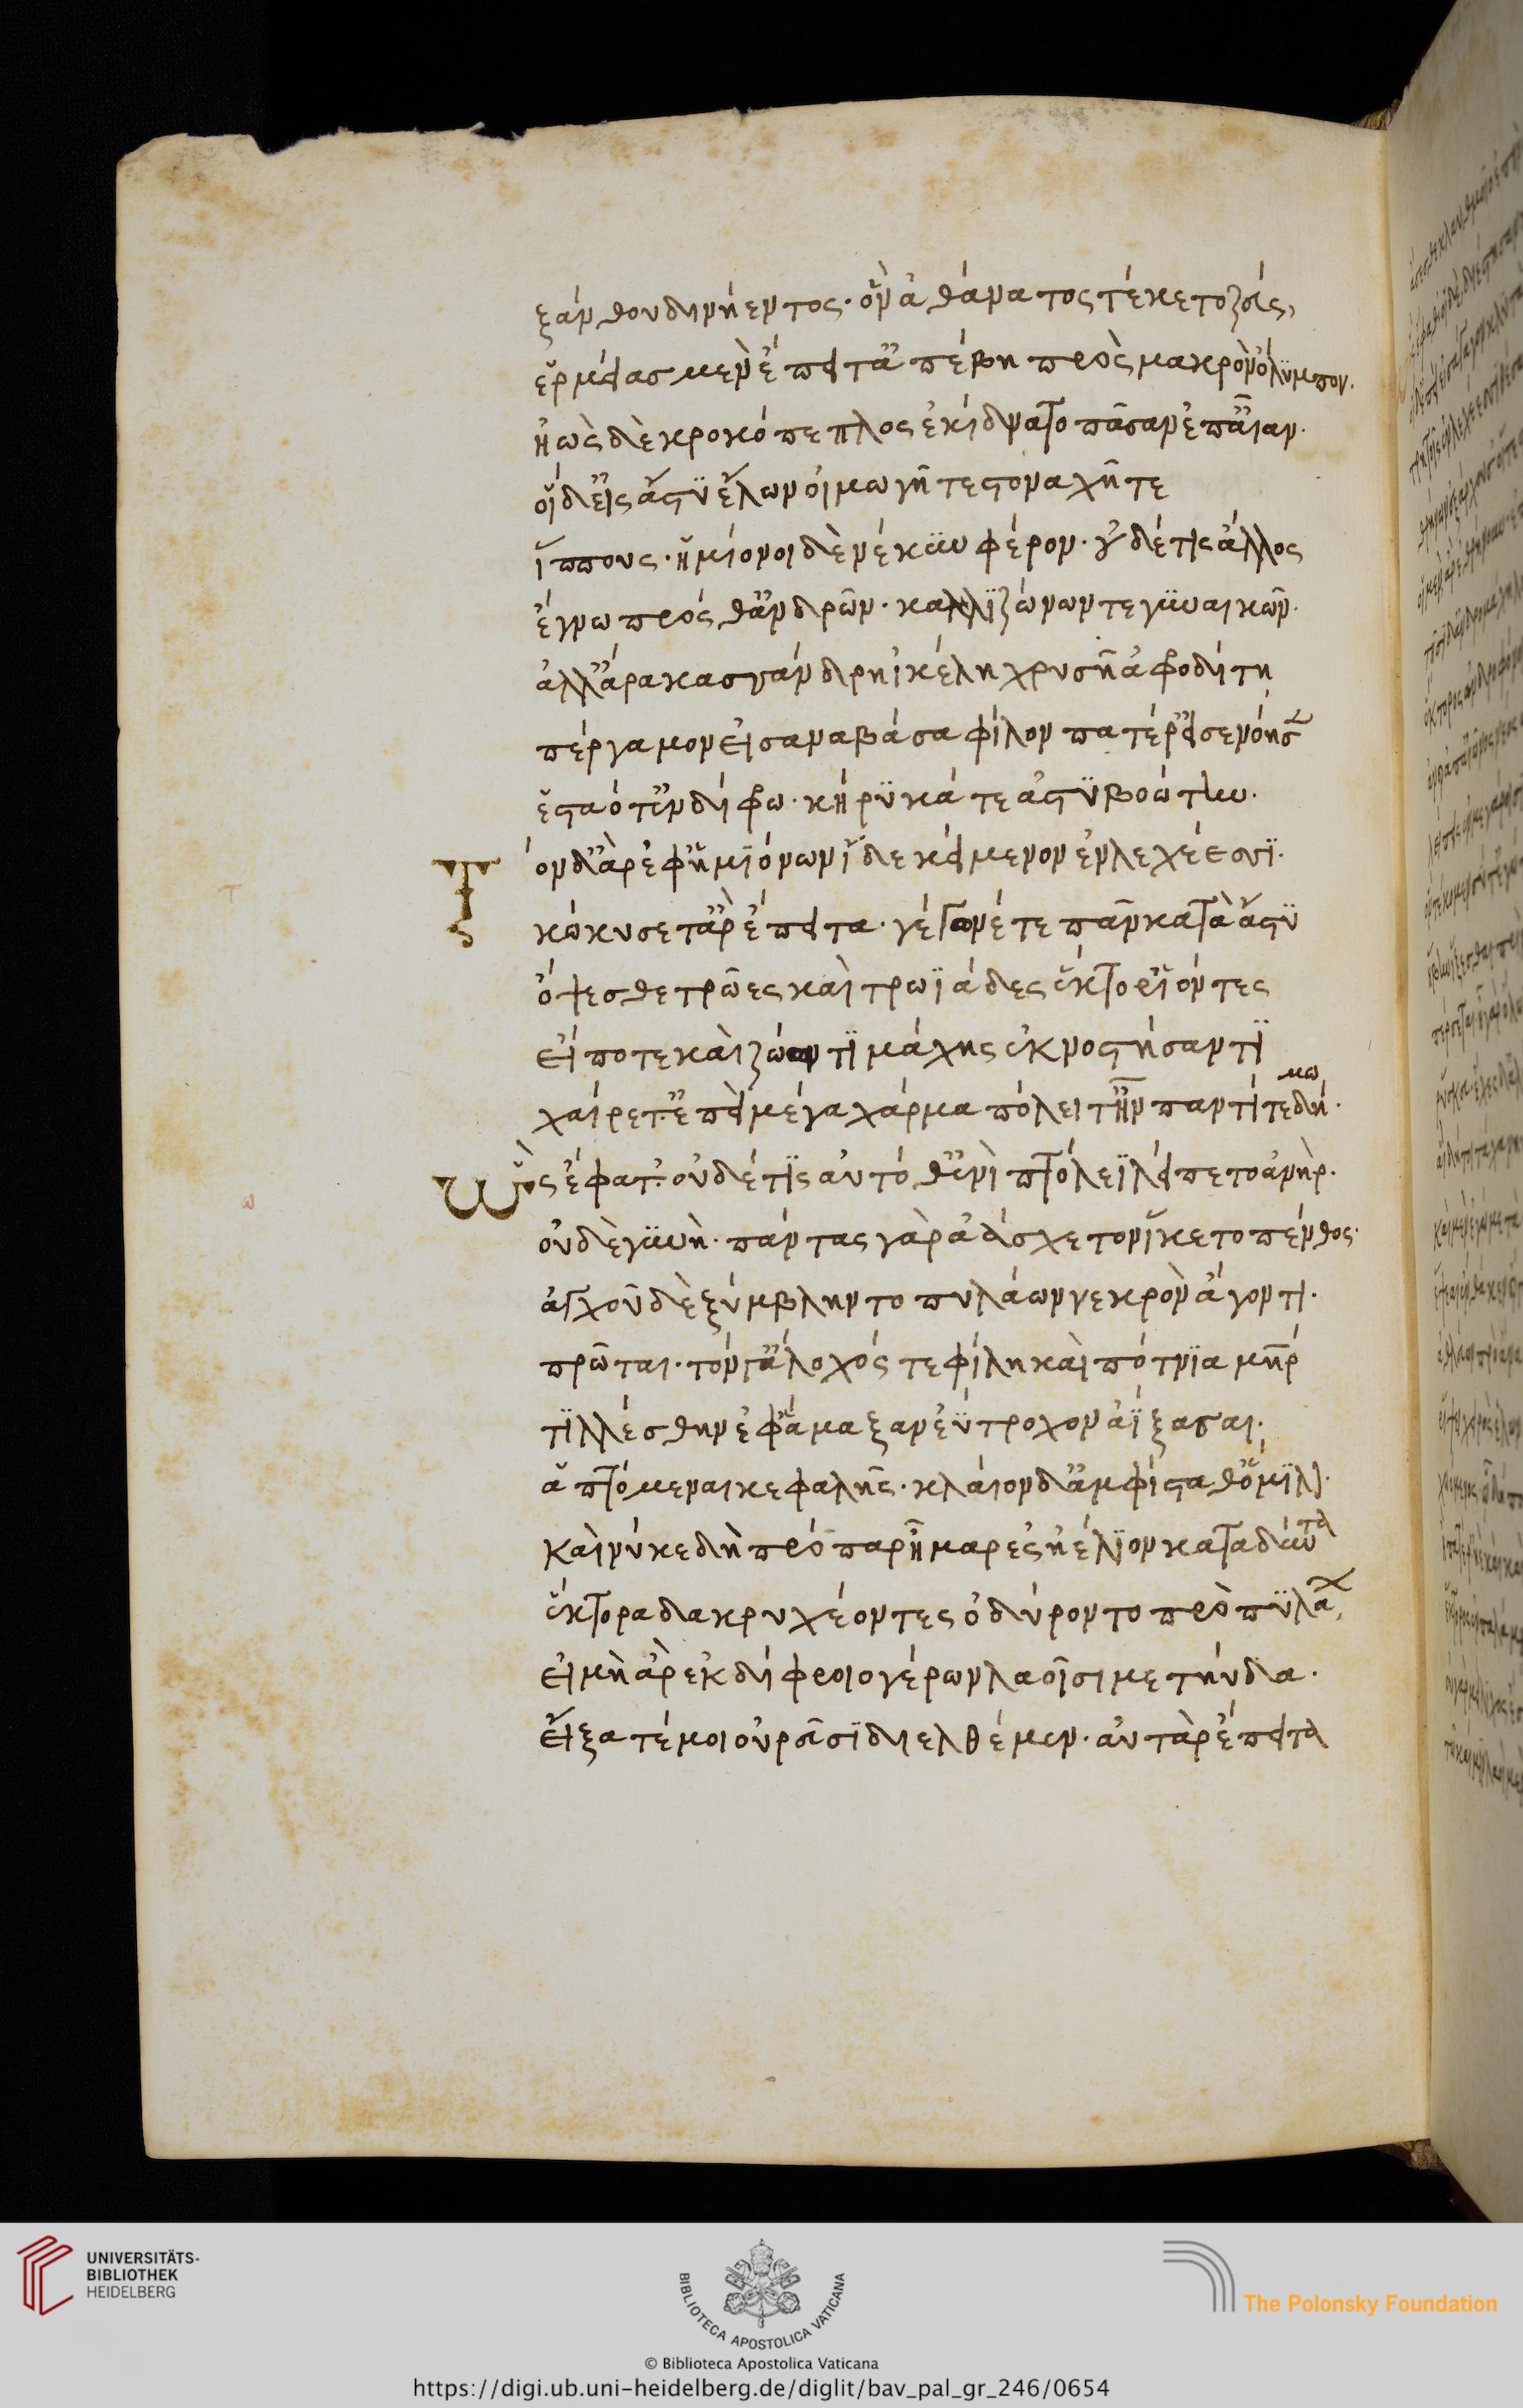 ξάνθου δινήεντος· ὃν ἀθάνατος τέκετο ζεύς,
ἑρμείας μὲν ἔπειτ' ἀπέβη πρὸς μακρὸν ὄλυμπον.
ἠὼς δὲ κροκόπεπλος ἐκίδνατο πᾶσαν ἐπ' αἶαν·
οἱ δ' εἰς ἄστυ ἔλων οἰμωγῆ τε στοναχῆ τε
ἵππους· ἡμίονοι δὲ νέκυν φέρον· οὐδέ τις ἄλλος
ἔγνω πρόσθ' ἀνδρῶν· καλλιζώνων τε γυναικῶν·
ἀλλ' ἄρα κασσάνδρη ἰκέλη χρυσῆ ἀφροδίτη
πέργαμον εἰσαναβᾶσα φίλον πατέρ' εἰσενόησεν
ἑσταότ' ἐν δίφρω· κήρυκά τε ἀστυβοώτην.
Τὸν δ' ἄρ' ἐφ' ἡμιόνων ἴδε κείμενον ἐν λεχέεσσι·
κώκυσέ τ' ἂρ ἔπειτα· γέγωνέ τε πᾶν κατὰ ἄστυ
ὄψεσθε τρῶες καὶ τρωϊάδες ἕκτορ' ἰόντες
εἴ ποτε καὶ ζώοντι μάχης ἐκ νοστήσαντι
χαίρετ'· ἐπεὶ μέγα χάρμα πόλει τ' ἦν παντί τε δήμω·
Ὣς ἔφατ'· οὐδέ τις αὐτόθ' ἐνὶ πτόλεϊ λείπετο ἀνὴρ.
οὐδὲ γυνὴ· πάντας γὰρ ἀάσχετον ἵκετο πένθος·
ἀγχοῦ δὲ ξύμβληντο πυλάων νεκρὸν ἄγοντι·
πρῶται· τόν γ' ἄλοχός τε φίλη καὶ πότνια μήτηρ
τιλλέσθην ἐφ' ἅμαξαν ἐΰτροχον ἀΐξασαι·
ἁπτόμεναι κεφαλῆς· κλαίων δ' ἀμφίσταθ' ὅμιλος·
καὶ νύ κε δὴ πρόπαν ἦμαρ ἐς ἠέλιον καταδύντα
ἕκτορα δακρυχέοντες ὀδύροντο πρὸ πυλάων,
εἰ μὴ ἂρ ἐκ δίφροιο γέρων λαοῖσι μετηύδα·
εἴξατέ μοι οὐρεῦσι διελθέμεν· αὐτὰρ ἔπειτα
τ
ω
UNIVERSITÄTS-
BIBLIOTHEK
HEIDELBERG
BIBLIOTECA APOSTOLICA VATICANA
The Polonsky Foundation
© Biblioteca Apostolica Vaticana
https://digi.ub.uni-heidelberg.de/diglit/bav_pal_gr_246/0654